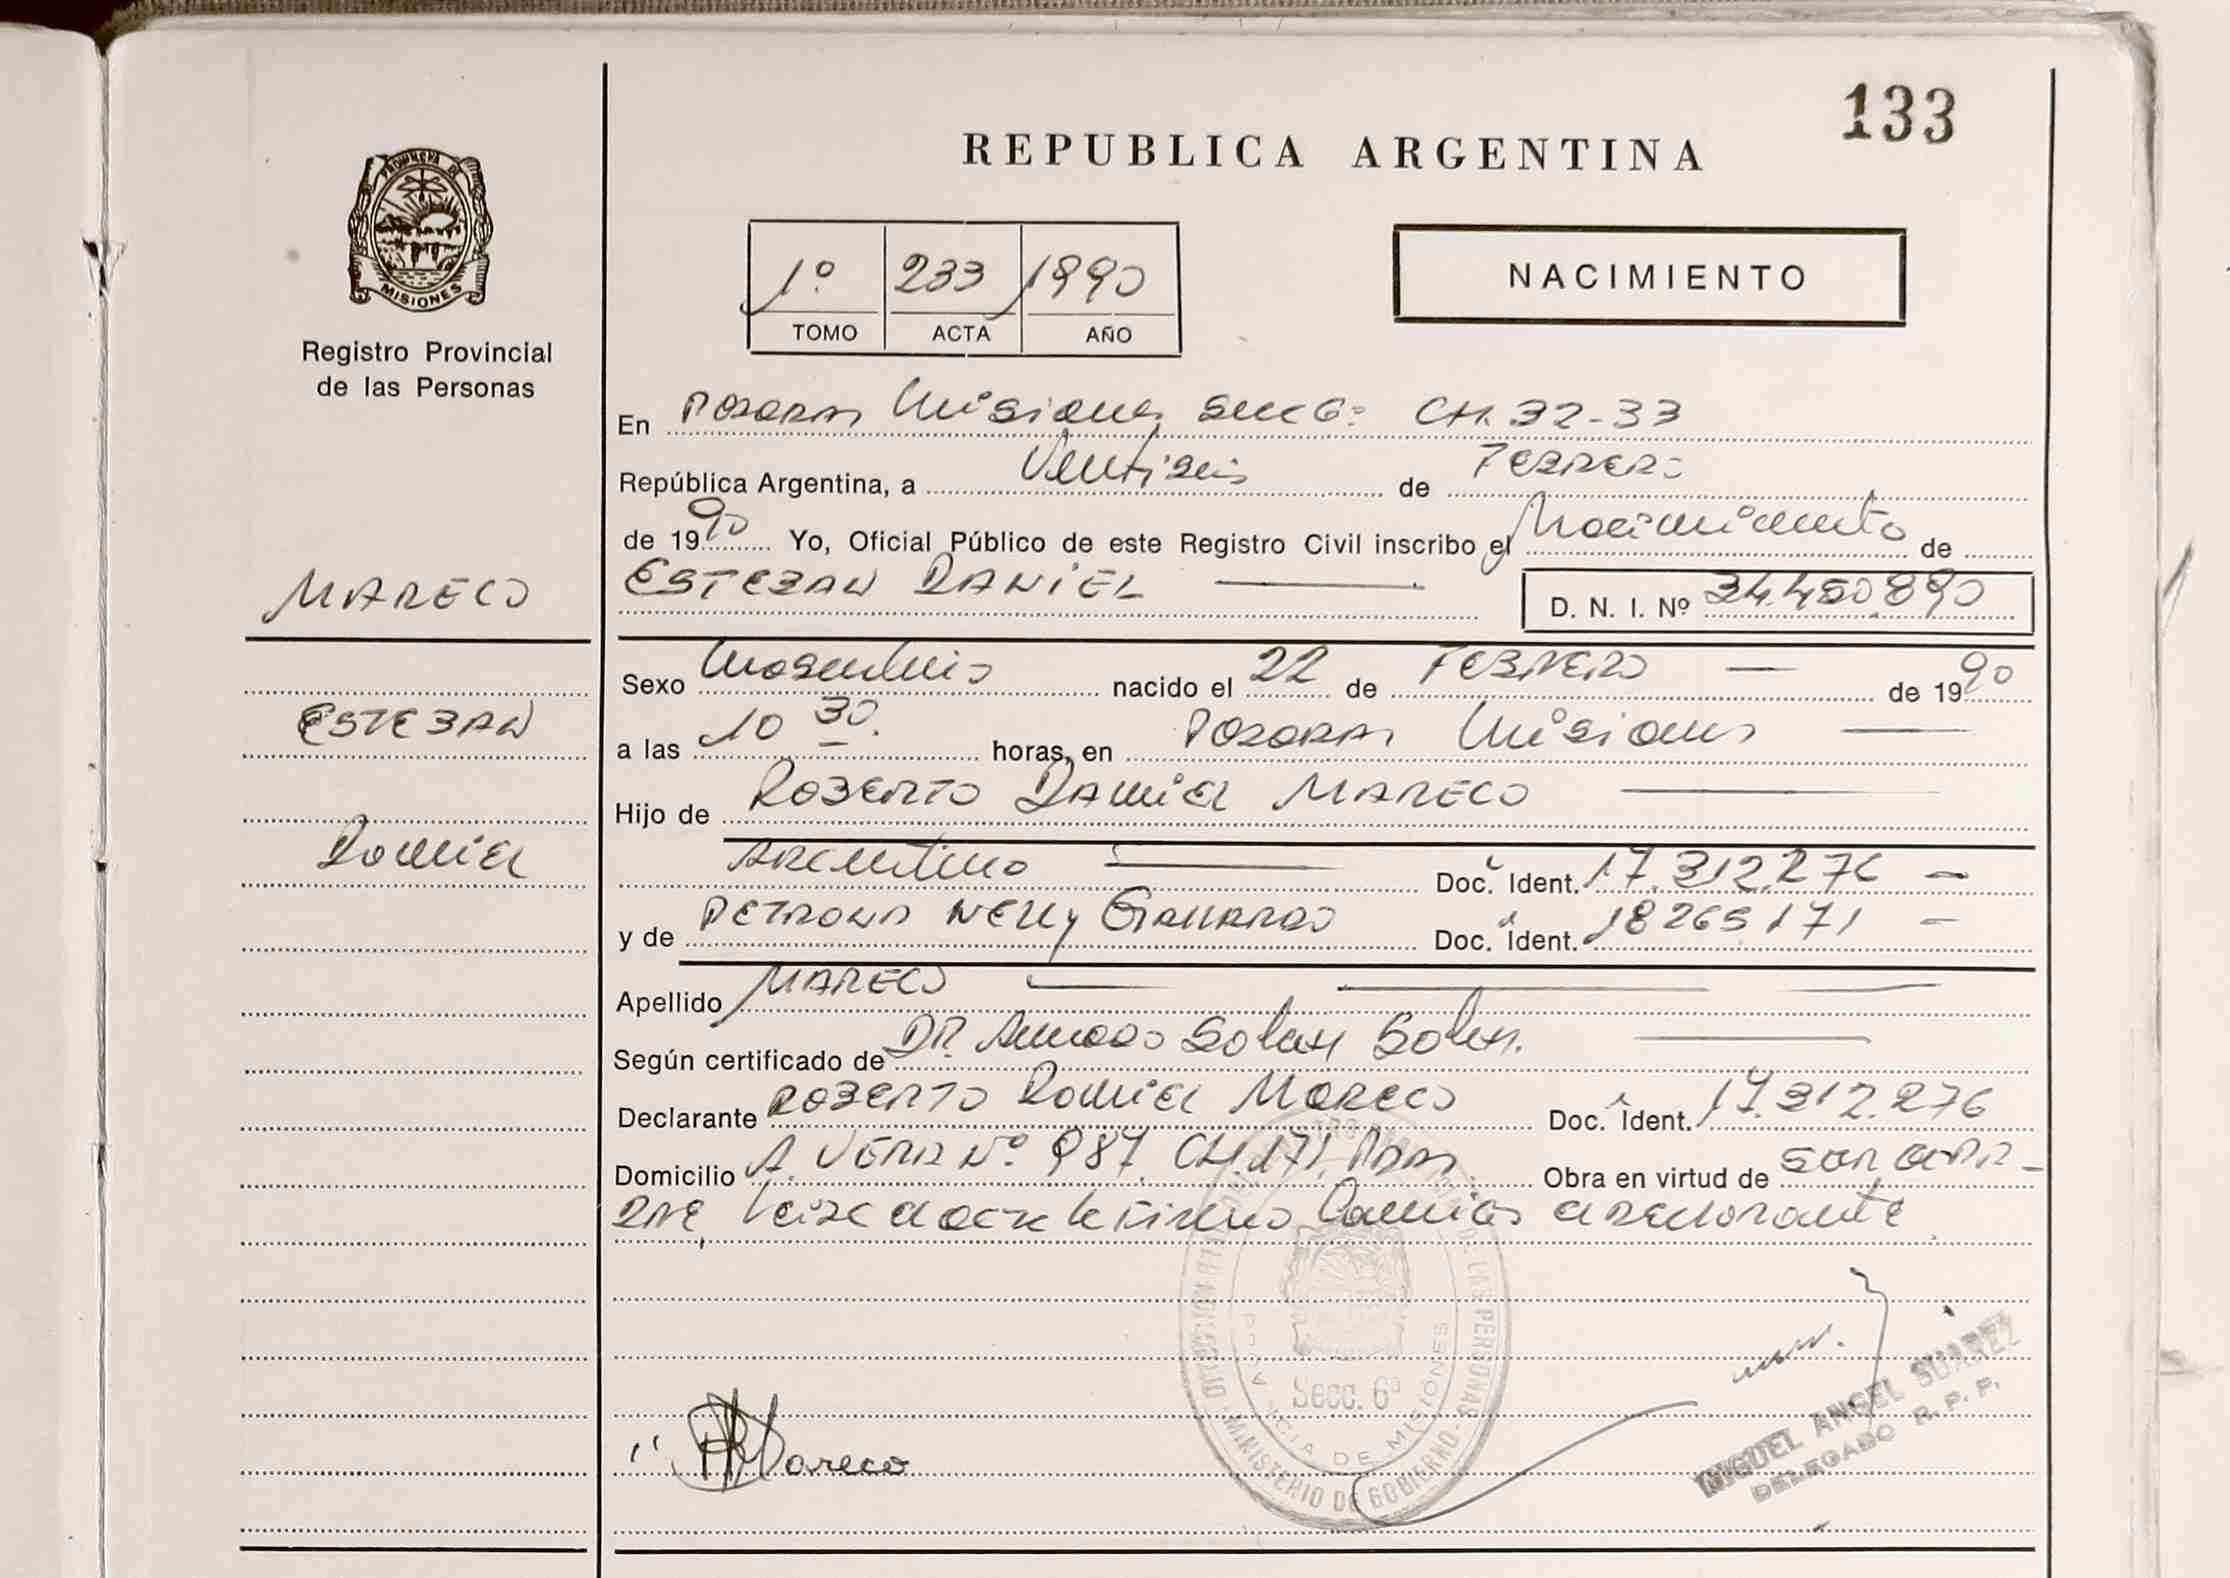 133
REPUBLICA ARGENTINA
PROVINCIA DE
MISIONES
Registro Provincial
de las Personas
1º 233 1990
TOMO ACTA AÑO
NACIMIENTO
En Posadas Misiones Secc 6º CH. 32-33
República Argentina, a Ventiseis de FEBRERO
de 1990 Yo, Oficial Público de este Registro Civil inscribo el Nacimiento de
MARECO
ESTEBAN DANIEL
D. N. I. Nº 34.450.890
Sexo Masculino nacido el 22 de FEBRERO de 1990
ESTEBAN
a las 10 30. horas, en Posadas Misiones
Hijo de ROBERTO DANIEL MARECO
Daniel
Argentino Doc. Ident. 17.312.276
y de PETRONA NELLY GALLARDO Doc. Ident. 18265171
Apellido MARECO
Según certificado de DR. Solan
Declarante ROBERTO Daniel MARECO Doc. Ident. 17.312.276
Domicilio A. VERA Nº 987 CH. 171, Pdas Obra en virtud de
el declarante
Mareco
DIRECCION DEL REGISTRO PROVINCIAL DE LAS PERSONAS
MINISTERIO DE GOBIERNO
PROVINCIA DE MISIONES
Secc. 6ª
MIGUEL ANGEL SUAREZ
DELEGADO R. P. P.